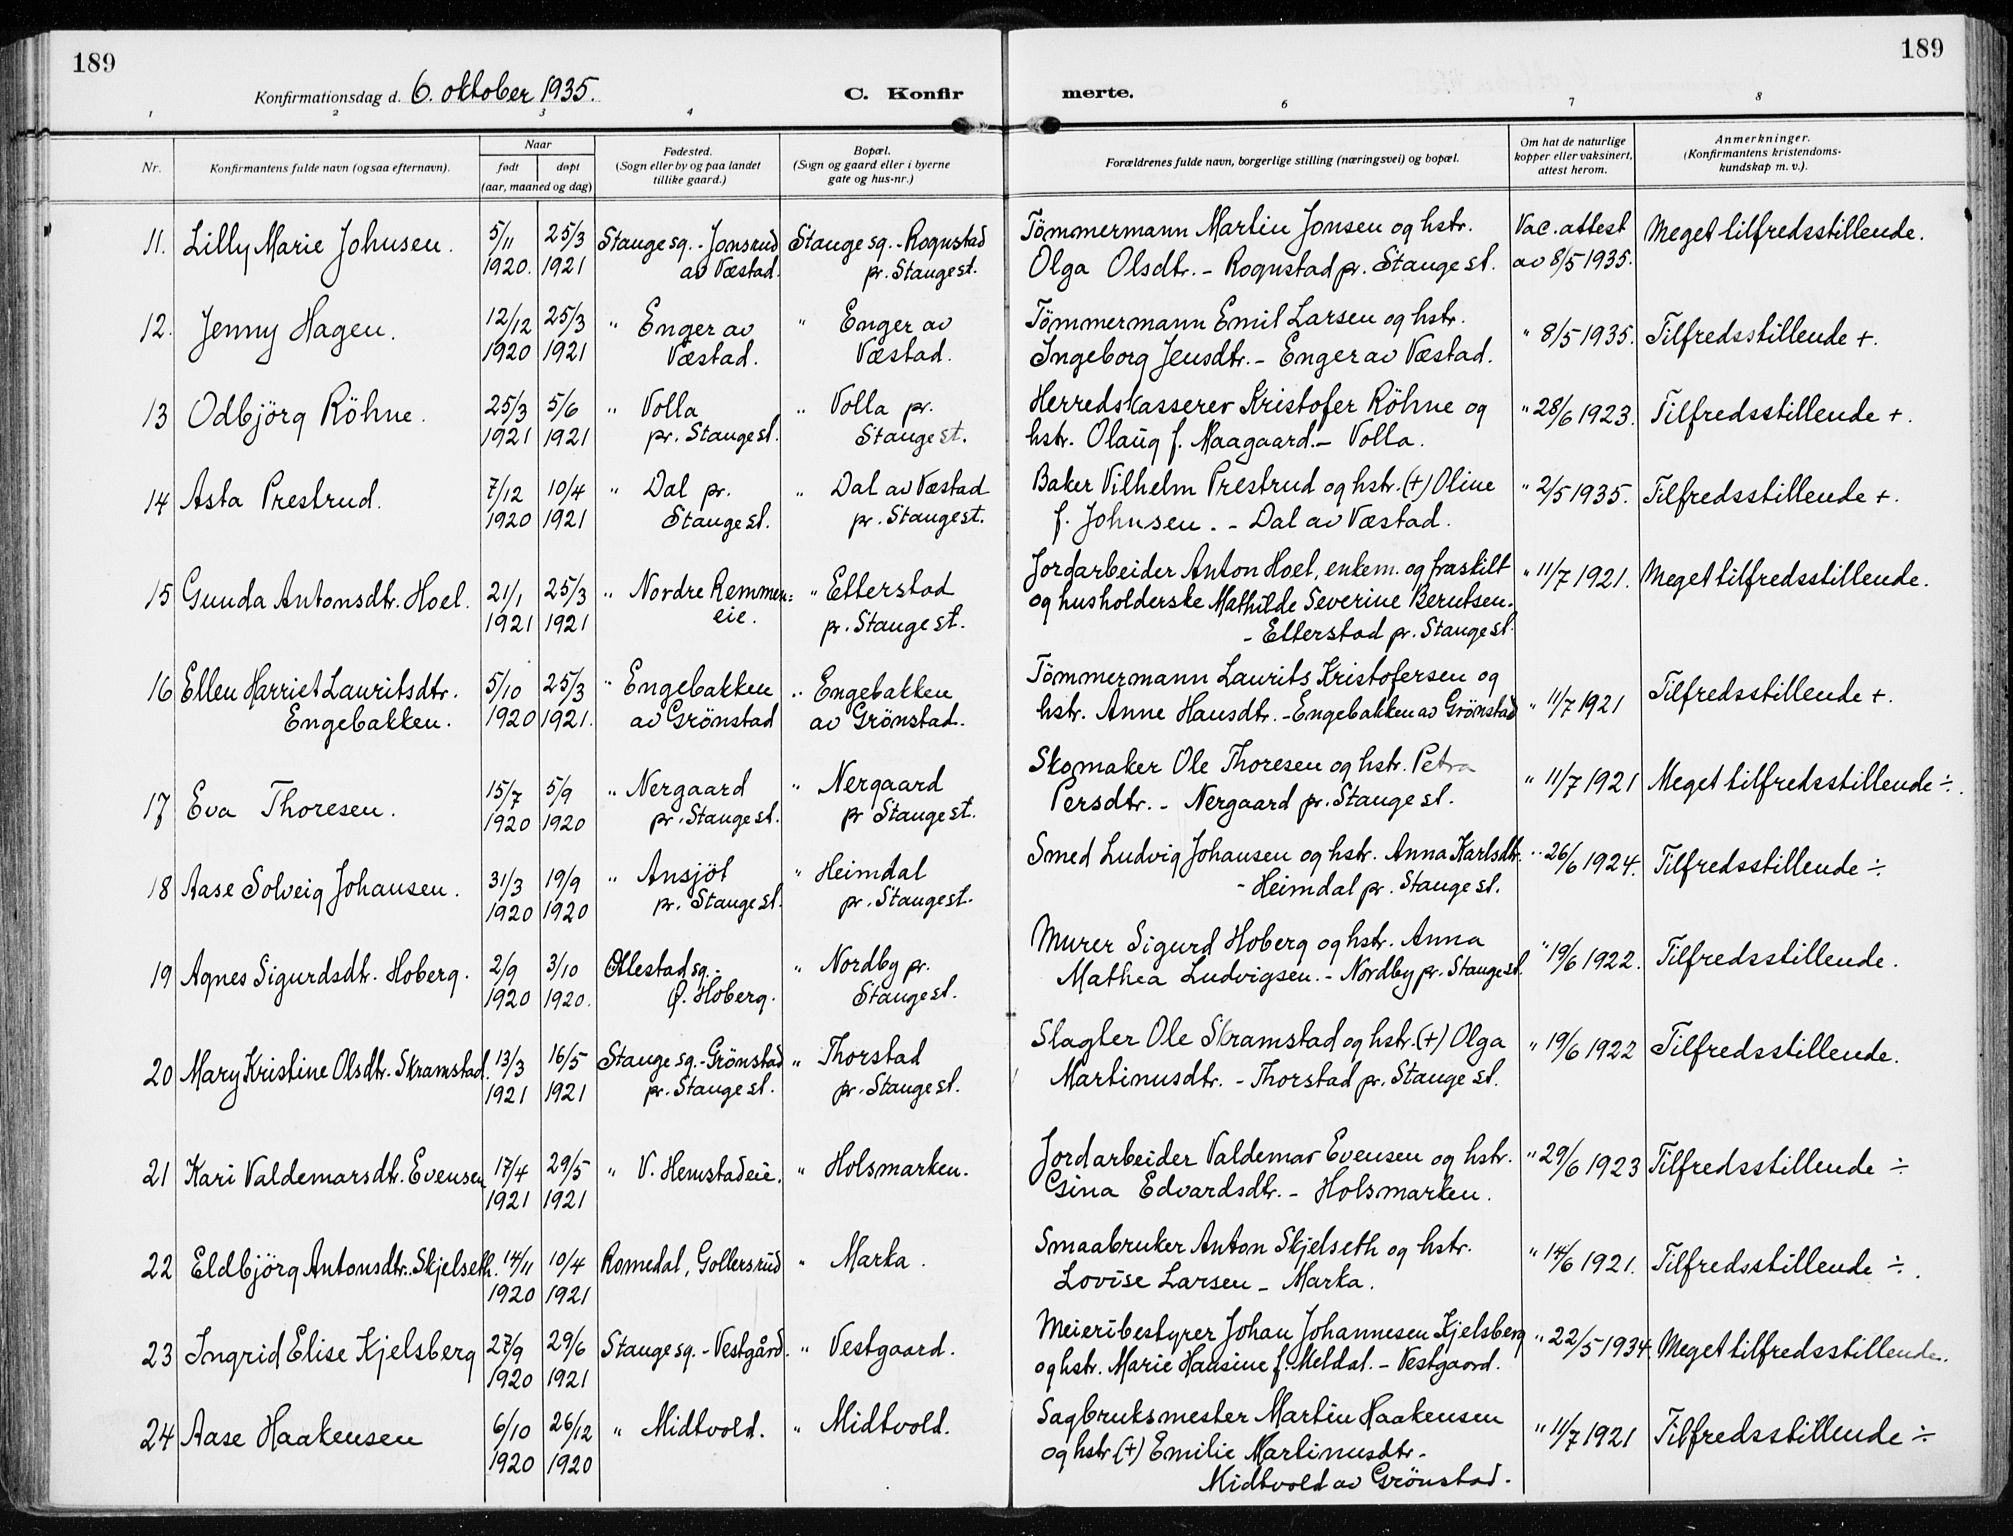 189
189
Konfirmationsdag d. 6. oktober 1935.
C. Konfir
merte.
1 2 3 4 6 7 8
Nr.
Konfirmantens fulde navn (ogsaa efternavn).
Naar
født
døpt
(aar, maaned og dag)
Fødested.
(Sogn eller by og paa landet
tillike gaard.)
Bopæl.
(Sogn og gaard eller i byerne
gate og hus-nr.)
Forældrenes fulde navn, borgerlige stilling (næringsvei) og bopæl.
Om hat de naturlige
kopper eller vaksinert,
attest herom.
Anmerkninger.
(Konfirmantens kristendoms-
kundskap m. v.).
11. Lilly Marie Johnsen. 5/11 25/3 Stange sg. - Jonsrud Stange sg. - Rognstad Tömmermann Martin Jonsen og hstr. Vac. attest Meget tilfredsstillende.
1920. 1921 av Væstad. pr. Stange st. Olga Olsdtr. - Rognstad pr. Stange st. av 8/5 1935.
12. Jenny Hagen. 12/12 25/3 " Enger av " Enger av Tömmermann Emil Larsen og hstr. " 8/5 1935. Tilfredsstillende +.
1920 1921 Væstad. Væstad. Ingeborg Jensdtr. - Enger av Væstad.
13 Odbjörg Röhne. 25/3 5/6 " Volla " Volla pr. Herredskasserer Kristofer Röhne og " 28/6 1923. Tilfredsstillende +.
1921 1921 pr. Stange st. Stange st. hstr. Olaug f. Naagaard. - Volla.
14 Asta Prestrud. 7/12 10/4 " Dal pr. " Dal av Væstad Baker Vilhelm Prestrud og hstr. (+) Oline " 2/5 1935. Tilfredsstillende +.
1920 1921 Stange st. pr. Stange st. f. Johnsen. - Dal av Væstad.
15 Gunda Antonsdtr. Hoel. 21/1 25/3 " Nordre Remmen= " Etterstad Jordarbeider Anton Hoel, enkem. og fraskilt " 11/7 1921. Meget tilfredsstillende.
1921 1921 eie. pr. Stange st. og husholderske Mathilde Severine Berntsen.
- Etterstad pr. Stange st.
16 Ellen Harriet Lauritsdtr. 5/10 25/3 " Engebakken " Engebakken Tömmermann Laurits Kristofersen og " 11/7 1921 Tilfredsstillende +.
Engebakken. 1920 1921. av Grönstad av Grönstad. hstr. Anne Hansdtr. - Engebakken av Grönstad
17 Eva Thoresen. 15/7 5/9 " Nergaard " Nergaard Skomaker Ole Thoresen og hstr. Petra " 11/7 1921 Meget tilfredsstillende ÷.
1920 1920 pr. Stange st. pr Stange st. Persdtr. - Nergaard pr. Stange st.
18 Aase Solveig Johansen. 31/3 19/9 " Ansjöt " Heimdal Smed Ludvig Johansen og hstr. Anna Karlsdtr. " 26/6 1924. Tilfredsstillende ÷
1920 1920 pr. Stange st. pr. Stange st. - Heimdal pr. Stange st.
19 Agnes Sigurdsdtr. Hoberg. 2/9 3/10 Ottestad sg. - " Nordby pr. Murer Sigurd Hoberg og hstr. Anna " 19/6 1922. Tilfredsstillende.
1920 1920. Ø. Hoberg. Stange st. Mathea Ludvigsen. - Nordby pr. Stange st.
20 Mary Kristine Olsdtr. Skramstad. 13/3 16/5 Stange sg. - Grönstad " Thorstad Slagter Ole Skramstad og hstr. (+) Olga " 19/6 1922 Tilfredsstillende.
1921 1921 pr. Stange st. pr. Stange st. Martinusdtr. - Thorstad pr. Stange st.
21 Kari Valdemarsdtr. Evensen 17/4 29/5 " V. Hemstadeie. " Holsmarken. Jordarbeider Valdemar Evensen og hstr. " 29/6 1923 Tilfredsstillende ÷
1921 1921 Gina Edvardsdtr. - Holsmarken.
22 Eldbjörg Antonsdtr. Skjelseth. 14/11 10/4 Romedal, Gollersrud " Marka. Smaabruker Anton Skjelseth og hstr. " 14/6 1921. Tilfredsstillende ÷.
1920 1921 Lovise Larsen - Marka.
23 Ingrid Elise Kjelsberg 27/9 29/6 Stange sg. - Vestgård. " Vestgaard. Meieribestyrer Johan Johannesen Kjelsberg " 22/5 1934. Meget tilfredsstillende.
1920 1921 og hstr. Marie Hansine f. Meldal. - Vestgaard.
24 Aase Haakensen 6/10 26/12 " Midtvold. " Midtvold. Sagbruksmester Martin Haakensen " 11/7 1921 Tilfredsstillende ÷
1920 1920 og hstr (+) Emilie Martinusdtr -
Midtvold av Grönstad.